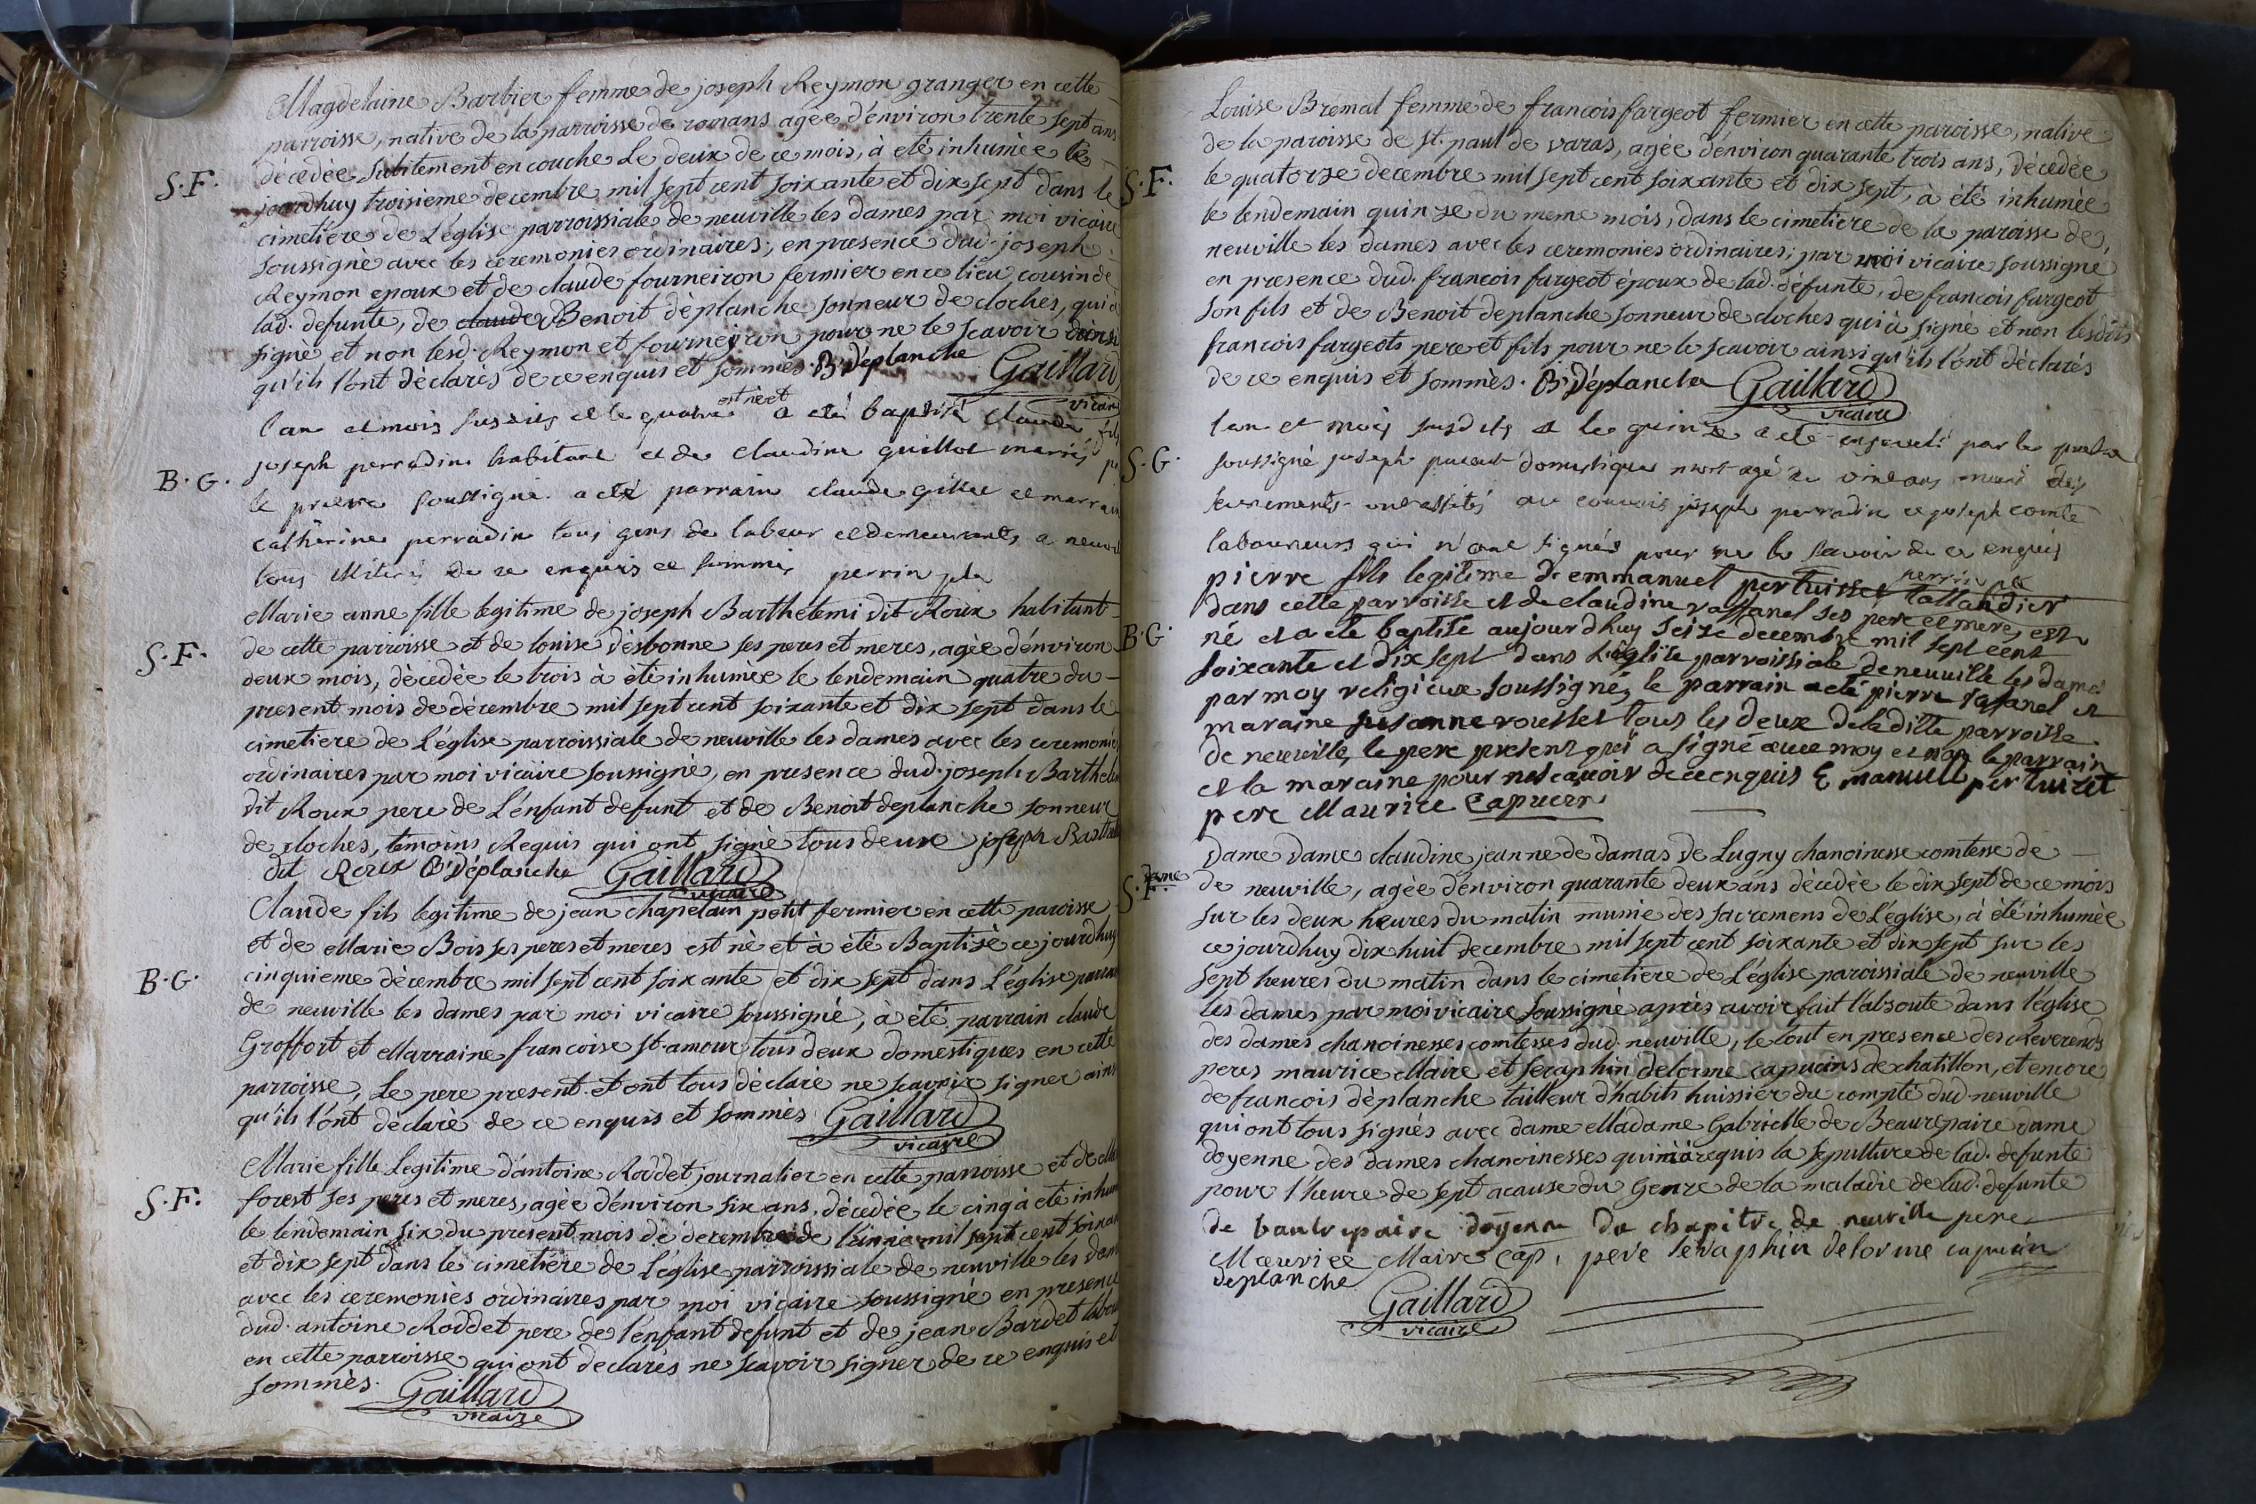 Magdelaine Barbier femme de joseph Reymon granger en cette
parroisse, native de la parroisse de romans agée d'énviron trente sept ans
décedée subitement en couche Le deux de ce mois, à eté inhumée le
S. F. jourdhuy troisieme decembre mil sept cent soixante et dix sept dans le
cimetiere de L'église parroissiale de neuville les dames par moi vicaire
soussigné avec les ceremonies ordinaires; en presence dud. joseph
Reymon epoux et de claude fourneiron fermier en ce lieu cousin de
lad. defunte, de claude Benoit déplanche sonneur de cloches, qui a
signé et non lesd. Reymon et fourneiron pour ne le scavoir ainsi
qu'ils l'ont déclarés de ce enquis et sommés. B. déplanche Gaillard
vicaire
l'an et mois susdits et le quatre est né et a eté baptisé claude fils
joseph perradin habitant et de claudine guillot mariés
B. G. le pretre soussigné a eté parrain claude et marrain
catherine perradin tous gens de labeur et demeurants a neuvil
tous illiterés de ce enquis et sommés perrin ptre
Marie anne fille legitime de joseph Barthelemi dit Roux habitant
S. F. de cette parroisse et de louise désbonne ses peres et meres, agée d'énviron
deux mois, décedée le trois à été inhumée le lendemain quatre du
present mois de décembre mil sept cent soixante et dix sept dans le
cimetiere de L'église parroissiale de neuville les dames avec les ceremonies
ordinaires par moi vicaire soussigné, en presence dud. joseph Barthelem
dit Roux pere de L'énfant defunt et de Benoit deplanche sonneur
de cloches, temoins Requis qui ont signé tous deux joseph Barthel
dit Roux B. déplanche Gaillard
vicaire
Claude fils legitime de jean chapelain petit fermier en cette paroisse
et de Marie Bois ses peres et meres est né et à été Baptisé ce jourdhuy
B. G. cinquieme décembre mil sept cent soixante et dix sept dans L'église parrois
de neuville les dames par moi vicaire soussigné, à été parrain claude
Groffort et Marraine francoise st. amour tous deux domestiques en cette
parroisse, Le pere present et ont tous déclaré ne scavoir signer ains
qu'ils l'ont déclaré de ce enquis et sommés Gaillard
vicaire
Marie fille Legitime d'antoine Roddet journalier en cette parroisse et de
S. F. forest ses peres et meres, agée d'énviron six ans, décedée le cinq à eté inhum
le lendemain six du present mois de decembre de l'année mil sept cent soixan
et dix sept dans le cimetiére de L'église parroissiale de neuville les dam
avec les ceremonies ordinaires par moi vicaire soussigné en presence
dud. antoine Roddet pere de l'enfant defunt et de jean Bardet labou
en cette parroisse qui ont declarés ne scavoir signer de ce enquis et
sommés. Gaillard
vicaire
Louise Brémal femme de francois fargeot fermier en cette paroisse, native
de la paroisse de st. paul de varas, agée d'énviron quarante trois ans, décedée
S. F. le quatorze decembre mil sept cent soixante et dix sept, à été inhumée
le lendemain quinze du meme mois, dans le cimetiere de la paroisse de
neuville les dames avec les ceremonies ordinaires; par moi vicaire soussigné
en presence dud. francois fargeot époux de lad. défunte, de francois fargeot
son fils et de Benoit deplanche sonneur de cloches qui à signé et non lesdits
francois fargeots pere et fils pour ne le scavoir ainsi qu'ils l'ont déclarés
de ce enquis et sommés. B. déplanche Gaillard
vicaire
l'an et mois susdits et le quinze a eté enseveli par le pretre
S. G. soussigné joseph domestique mort agé de vint ans muni des
sacrements ont assistés au convois joseph perradin et joseph comte
laboureurs qui n'ont signés pour ne le savoir de ce enquis
perrin ptre
pierre fils legitime de emmanuel pertuiset tallandier
dans cette parroisse et de claudine raffanel ses pere et mere, est
B. G. né et a eté baptisé aujourdhuy seize decembre mil sept cent
soixante et dix sept dans l'église parroissiale de neuville les dames
par moy religieux soussigné, le parrain a eté pierre rafanel et
maraine susanne rousset tous les deux de la ditte parroisse
de neuville, le pere present qui a signé avec moy et non le parrain
et la maraine pour ne scavoir de ce enquis Emanuel pertuiset
pere Maurice Capucin
Dame dame claudine jeanne de damas de Lugny chanoinesse comtesse de
S. F. dame de neuville, agée d'énviron quarante deux ans décedée le dix sept de ce mois
sur les deux heures du matin munie des sacremens de L'église, à été inhumée
ce jourdhuy dix huit decembre mil sept cent soixante et dix sept sur les
sept heures du matin dans le cimetiere de L'église paroissiale de neuville
les dames par moi vicaire soussigné aprés avoir fait l'absoute dans l'église
des dames chanoinesses comtesses dud. neuville, le tout en presence des Reverends
peres maurice Maire et seraphin delorme capucins de chatillon, et encore
de francois déplanche tailleur d'habits huissier du compté dud. neuville
qui ont tous signés avec dame Madame Gabrielle de Beaurepaire dame
doyenne des dames chanoinesses qui m'à requis la sepulture de lad. defunte
pour l'heure de sept acause du Genre de la maladie de lad. defunte
de beaurepaire doyenne du chapitre de neuville pere
Maurice Maire cap. pere séraphin delorme capucin
deplanche
Gaillard
vicaire